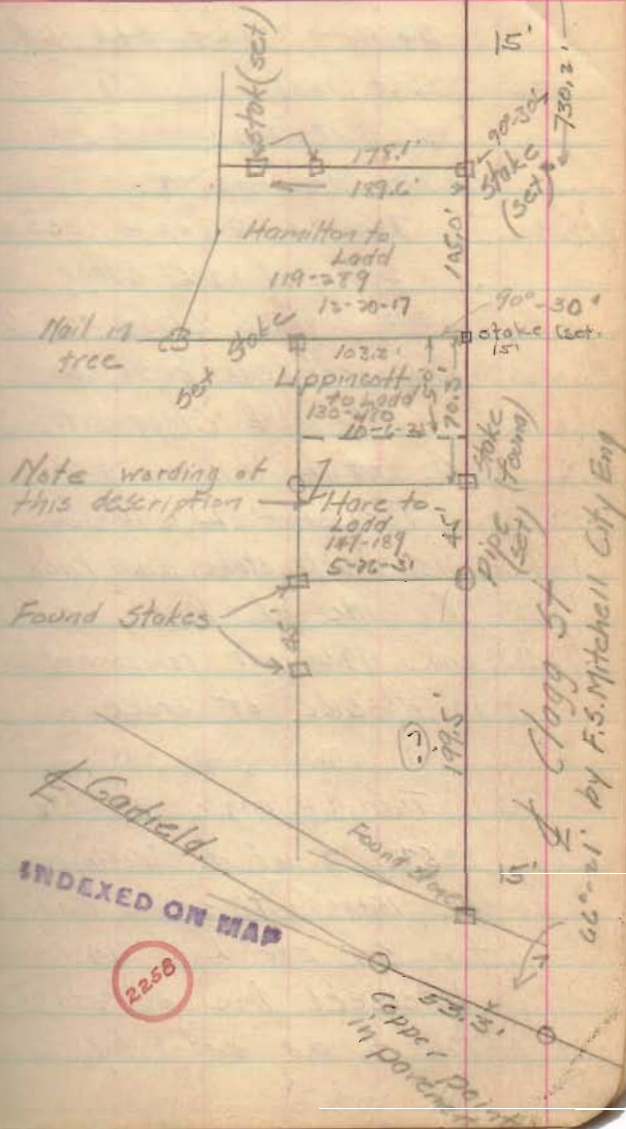 15'
730.2'
stak (set)
90°-30'
178.1'
189.6'
Stake
(set)
105.0'
Hamilton to
Ladd
119-289
12-20-17
90°-30'
Nail in
tree
Set Stake
stake (set.
15'
103.2'
50'
70.3'
Lippincott
to Ladd
130-470
10-6-31
Stake
(found)
Note wording of
this description
Hare to
Ladd
149-189
5-26-51
45'
Pipe
(set)
Found Stakes
45'
(?)
199.5'
℄ Clogg St
66°-21' by F.S. Mitchell City Eng
℄ Garfield.
Found stone
15'
INDEXED ON MAP
2258
53.3'
copper point
in pavement